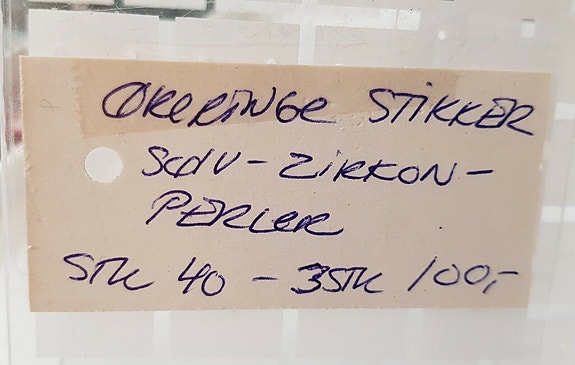 ØRERINGE STIKKER
SØLV - ZIRKON -
PERLER
STK 40 - 3STK 100,-